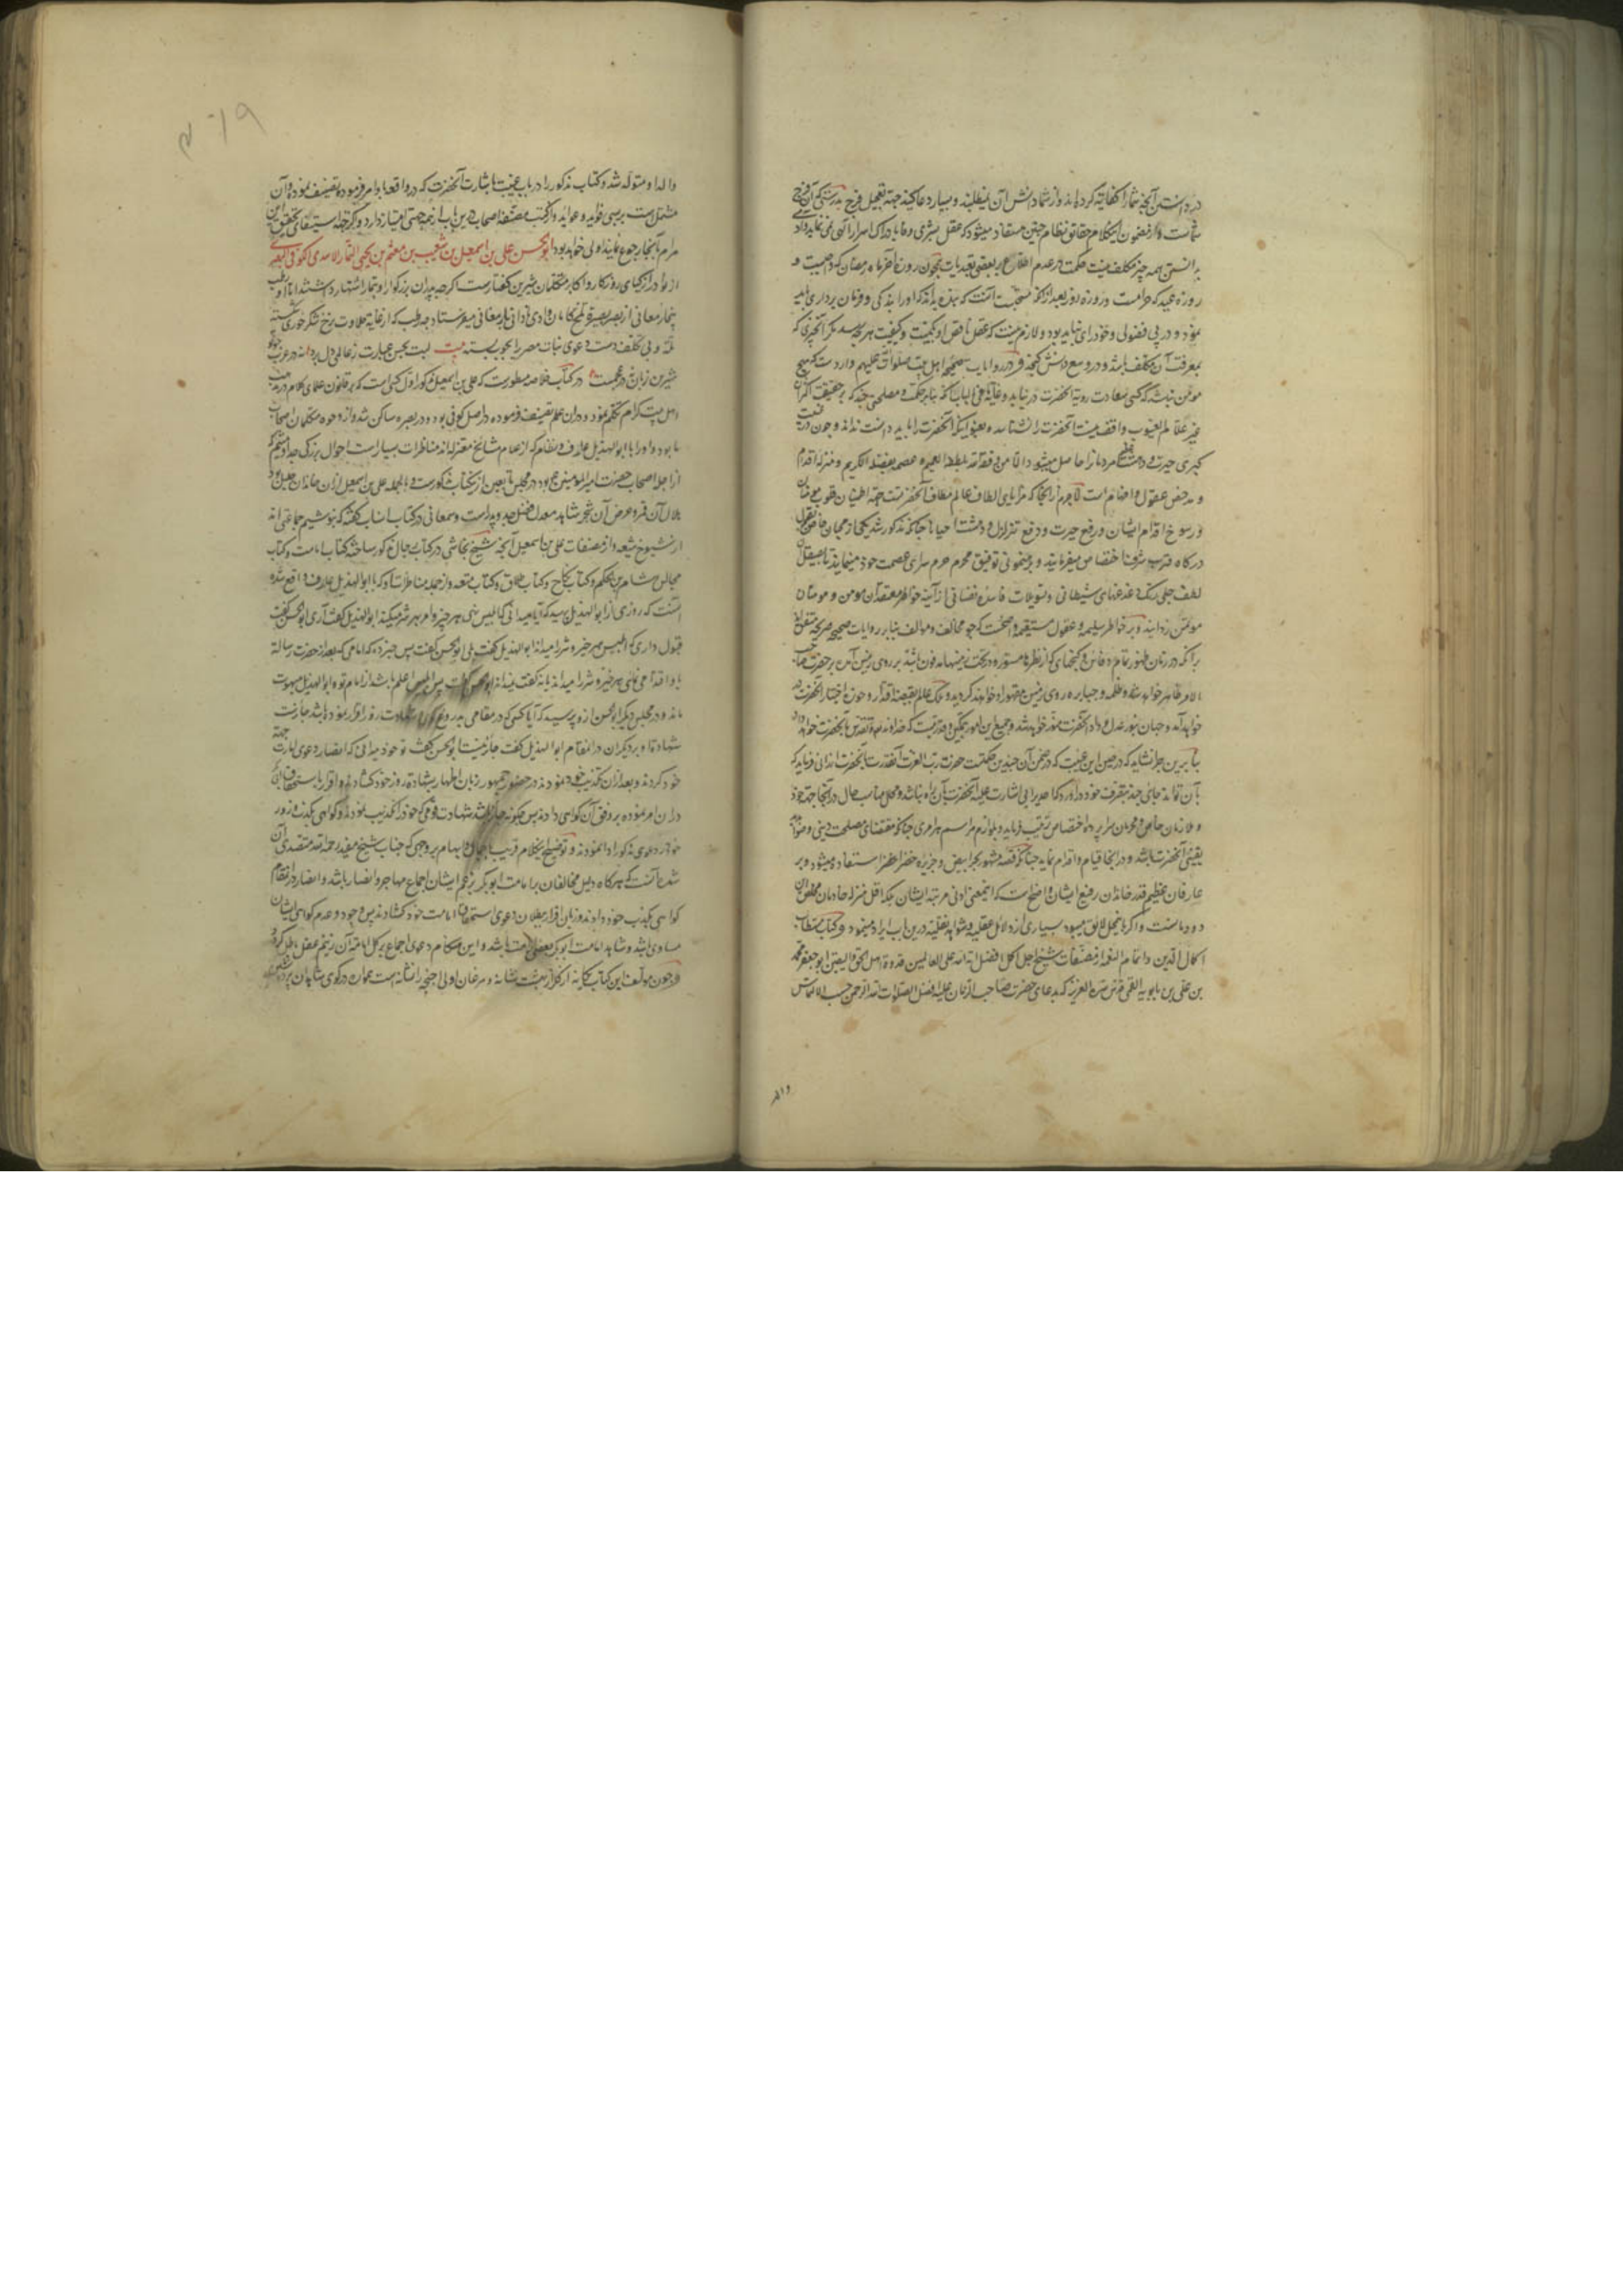 در دانستن آنچه شما را کفایت کرده اند و از شما دانش آن نمیطلبند و بسیار دعا کنید جهة تعجیل فرج بدرستی که آن فرج
شماست و از مضمون این کلام حقایق نظام چنین مستفاد میشود که عقل بشری وفا بادراک اسرار الهی نمی نماید و آدمی
بدانستن همه چیز مکلف نیست حکمت در عدم اطلاع بر بعضی تعبدیات همچون روزه آخر ماه رمضان که واجبست و
روزه عید که حرامست و روزه روز بعد از آن که مستحبست آنست که بنده بداند که او را بندگی و فرمان برداری باید
نمود و در پی فضولی و خود رای نباید بود و لازم نیست که عقل ناقص او بکمیت و کیفیت هر چه رسد مگر آنچیزی که
بمعرفت آن مکلف باشد و در وسع دانش گنجد و در روایات صحیحه اهل بیت صلوات الله علیهم وارد است که هیچ
مؤمن نباشد که کسی سعادت رویة آنحضرت در نیابد و غایة ما فی الباب آنکه بنا بر حکمت و مصلحتی چند که بر حقیقت اکثر آن
غیر علام الغیوب واقف نیست آنحضرت را نشناسد و بعنوان اینکه آنحضرت را باید دانست نداند و چون در غیبت
کبری حیرت و دهشت عظیم مردمانرا حاصل میشود الا من وفقه الله بلطفه العمیم و عصمه بفضله الکریم و منزله اقدام
و مدحض عقول و افهام است لاجرم از آنجا که مزایای الطاف عالم مطاف آنحضرتست جهة اطمینان قلوب مؤمنان
و رسوخ اقدام ایشان و رفع حیرت و دفع تزلزل و دهشت احیانا چنانکه مذکور شد یکی از محبان خاص را بقول
درگاه قرب شرف اختصاص میفرمایند و برهنمونی توفیق محرم حرم سرای عصمت خود مینمایند تا بصیقل
لطف جلی زنگ دغدغهای شیطانی و تسویلات فاسده نفسانی از آینه خواطر معتقدان مؤمن و مومنان
موتمن زدایند و بر خواطر سلیمه و عقول مستقیمه واضحست که چو مخالف و مؤالف بنابر روایات صحیحه صریحه متفق اند
بر آنکه در زمان ظهور تمام دفاین و گنجهای که از نظرها مستور و در تحت زمینها مدفون باشد بر روی زمین آمده بر حضرت صاحب
الامر ظاهر خواهد شد و ظلمه و جبابره روی زمین مقهور او خواهند گردید و ملک عالم بقبضه اقتدار و حوزه اختیار آنحضرت در
خواهد آمد و جهان بنور عدل و داد آنحضرت منور خواهد شد و جمیع این امور بتمکین و قدرتیست که خداوند تعالی و تقدس بآنحضرت خواهد داد
بنابرین چرا نشاید که در حین این غیبت که در ضمن آن چندین حکمتست حضرت رب العزت آنقدرت بآنحضرت ارزانی فرماید که
بآن تواند جای چند بتصرف خود درآورد که احدی را بی اشارت علیه آنحضرت بآن راه نباشد و محل مناسب حال در آنجا جهة خود
و ملازمان خاص و محرمان سراپرده اختصاص ترتیب فرماید و بلوازم مراسم هر امری چنانکه مقتضای مصلحت دینی و موافق
یقینی آنحضرت باشد و در آنجا قیام و اقدام نماید چنانکه از قصه مشهوره بحر ابیض و جزیره خضرا ظهرا استفاده میشود و بر
عارفان عظیم قدر خاندان رفیع ایشان واضحست که اینمعنی ادنی مرتبه ایشان بلکه اقل منزله خادمان مخلص آن
دودمانست و اگر باینمحل لایق میبود بسیاری از دلائل عقلیه و شواهد نقلیه درین باب ایراد مینمود و کتاب مستطاب
اکمال الدین و اتمام النعمه از مصنفات شیخ اجل اکمل افضل آیة الله علی العالمین قدوة اهل الحق و الیقین ابو جعفر محمد
بن علی بن بابویه القمی قدس سره العزیز که بدعای حضرت صاحب الزمان علیه افضل الصلوات الله الرحمن حسب الالتماس
والد
والد او متولد شد و کتاب مذکور را در باب غیبت باشارت آنحضرت که در واقعه باو امر فرموده تصنیف نموده و آن
مشتمل است بر بسی فواید و عواید و از کتب مصنفه اصحاب درین باب از همه جهتی امتیاز دارد و اگر جهة استیفای تحقیق این
مرام بآنجا رجوع نمایند اولی خواهد بود ابو الحسن علی بن اسمعیل بن شعیب بن میثم بن یحیی التمار الاسدی الکوفی البصری
از نوادر ازکیای روزگار و اکابر متکلمان شیرین گفتارست اگر چه پدران بزرگوار او بتمار اشتهار داشتند اما او رطب
تمار معانی از بصر بصیرت
تلخ و بی تکلف دست دعوی نبات مصر را بچوب بسته بیت لبت بحسن عبارت ز عالمی دل برد
شیرین زبان در عجمست در کتاب خلاصه مسطورست که علی بن اسمعیل مذکور اول کسی است که بر قانون علمای کلام در مذهب
اهل بیت کرام تکلم نمود و در آن علم تصنیف فرموده و در اصل کوفی بود و در بصره ساکن شد و از وجوه متکلمان اصحاب
ما بود و او را با ابو الهذیل علاف و نظام که از عظام مشایخ معتزله اند مناظرات بسیارست احوال بزرگی جد او میثم که
از اجلا اصحاب حضرت امیر المومنین ع بود در مجلس تابعین ازین کتاب مذکورست و بالجمله علی بن اسمعیل از آن خاندان جلیل بود
بلال آن فرع و عرض آن شجر شاهد معدل فضل جد و پدرست و سمعانی در کتاب انساب گفته که بنو میثم جماعتی اند
از شیوخ شیعه و از مصنفات علی بن اسمعیل آنچه شیخ نجاشی در کتاب رجال مذکور ساخته کتاب امامت و کتاب
مجالس هشام بن الحکم و کتاب نکاح و کتاب طلاق و کتاب متعه و از جمله مناظرات او که با ابو الهذیل علاف واقع شده
آنست که روزی از ابو الهذیل پرسید که آیا میدانی که ابلیس نهی هر خیر و امر بهر شر میکند ابو الهذیل گفت آری ابو الحسن گفت
قبول داری که ابلیس هر خیر و شر را میداند ابو الهذیل گفت بلی ابو الحسن گفت پس خبر ده که امامی که بعد از حضرت رسالة
باو اقتدا می نمای هر خیر و شر را میداند یا نه گفت نمیداند ابو الحسن گفت پس ابلیس اعلم باشد از امام تو و ابو الهذیل مبهوت
ماند و در مجلس دیگر ابو الحسن از و پرسید که آیا کسی که در مقامی بدروغ گوئی و شهادت زور اقرار نموده باشد جایزست
شهادت او بر دیگران در آن مقام ابو الهذیل گفت جایز نیست ابو الحسن گفت تو خود میدانی که انصار دعوی امارت جهة
خود کردند و بعد از آن تکذیب خود نمودند و در حضور جمهور زبان باظهار شهادت زور خود گشادند و اقرار باستحقاق ابی بکر
در آن امر نموده بر وفق آن گواهی دادند پس چگونه جایز باشد شهادت قومی که خود را تکذیب نموده اند و گواهی بکذب و زور
خود در دعوی مذکور ادا نمودند و توضیح این کلام قریب باجمال و ابهام بر وجهی که جناب شیخ مفید رحمه الله متصدی آن
شده آنست که هر گاه دلیل مخالفان بر امامت ابو بکر بزعم ایشان اجماع مهاجر و انصار باشد و انصار در آن مقام
گواهی بکذب خود داده اند و زبان اقرار ببطلان دعوی استحقاق امامت خود گشادند پس وجود و عدم گواهی ایشان
مساوی باشد و شاهد امامت ابو بکر بعضی امت باشد و این هنگام دعوی اجماع بر کل امامة آن زنیم عتل باطل گردد
و چون مولف این کتاب